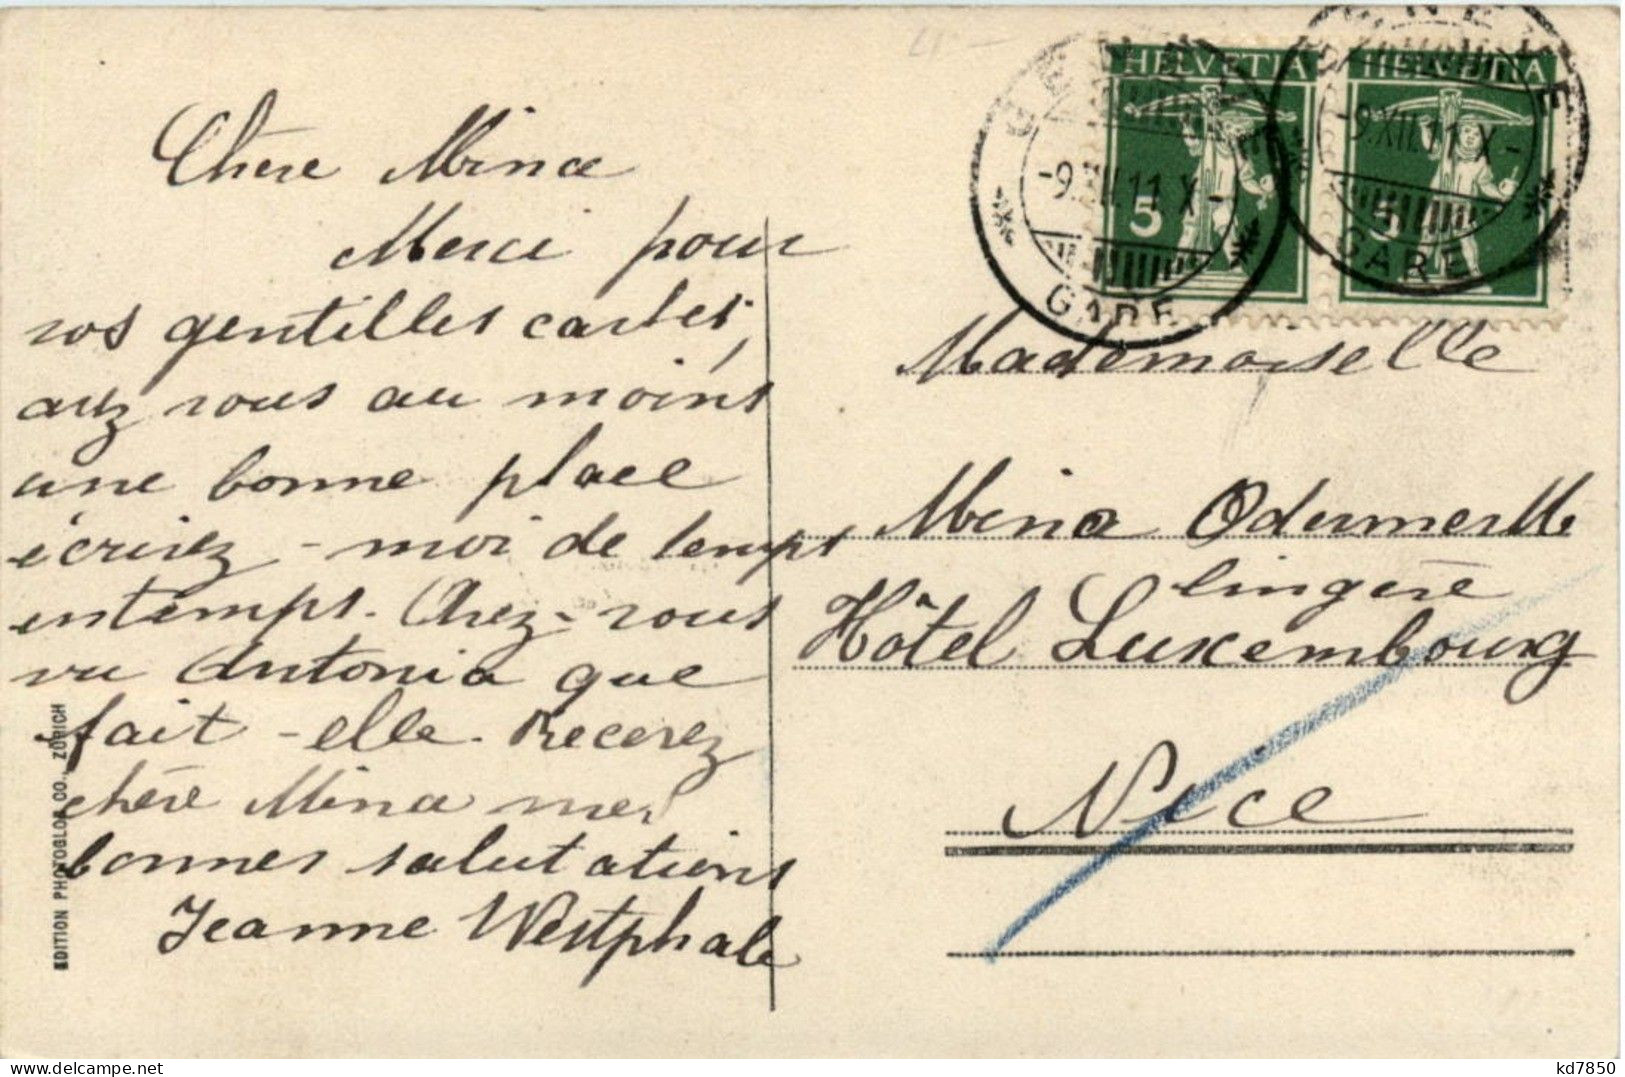 Chère Mina
Merci pour
vos gentilles cartes,
avez vous au moins
une bonne place
écrivez-moi de temps
entemps. Avez-vous
vu Antonia que
fait-elle. Recevez
chère Mina mes
bonnes salutations
Jeanne Westphale
EDITION PHOTOGLOB CO., ZÜRICH
HELVETIA HELVETIA
5 5
GENEVE
-9.XII.11 X-
GARE
GENEVE
-9.XII.11 X-
GARE
Mademoiselle
Mina
lingère
Hôtel Luxembourg
Nice
kd7850